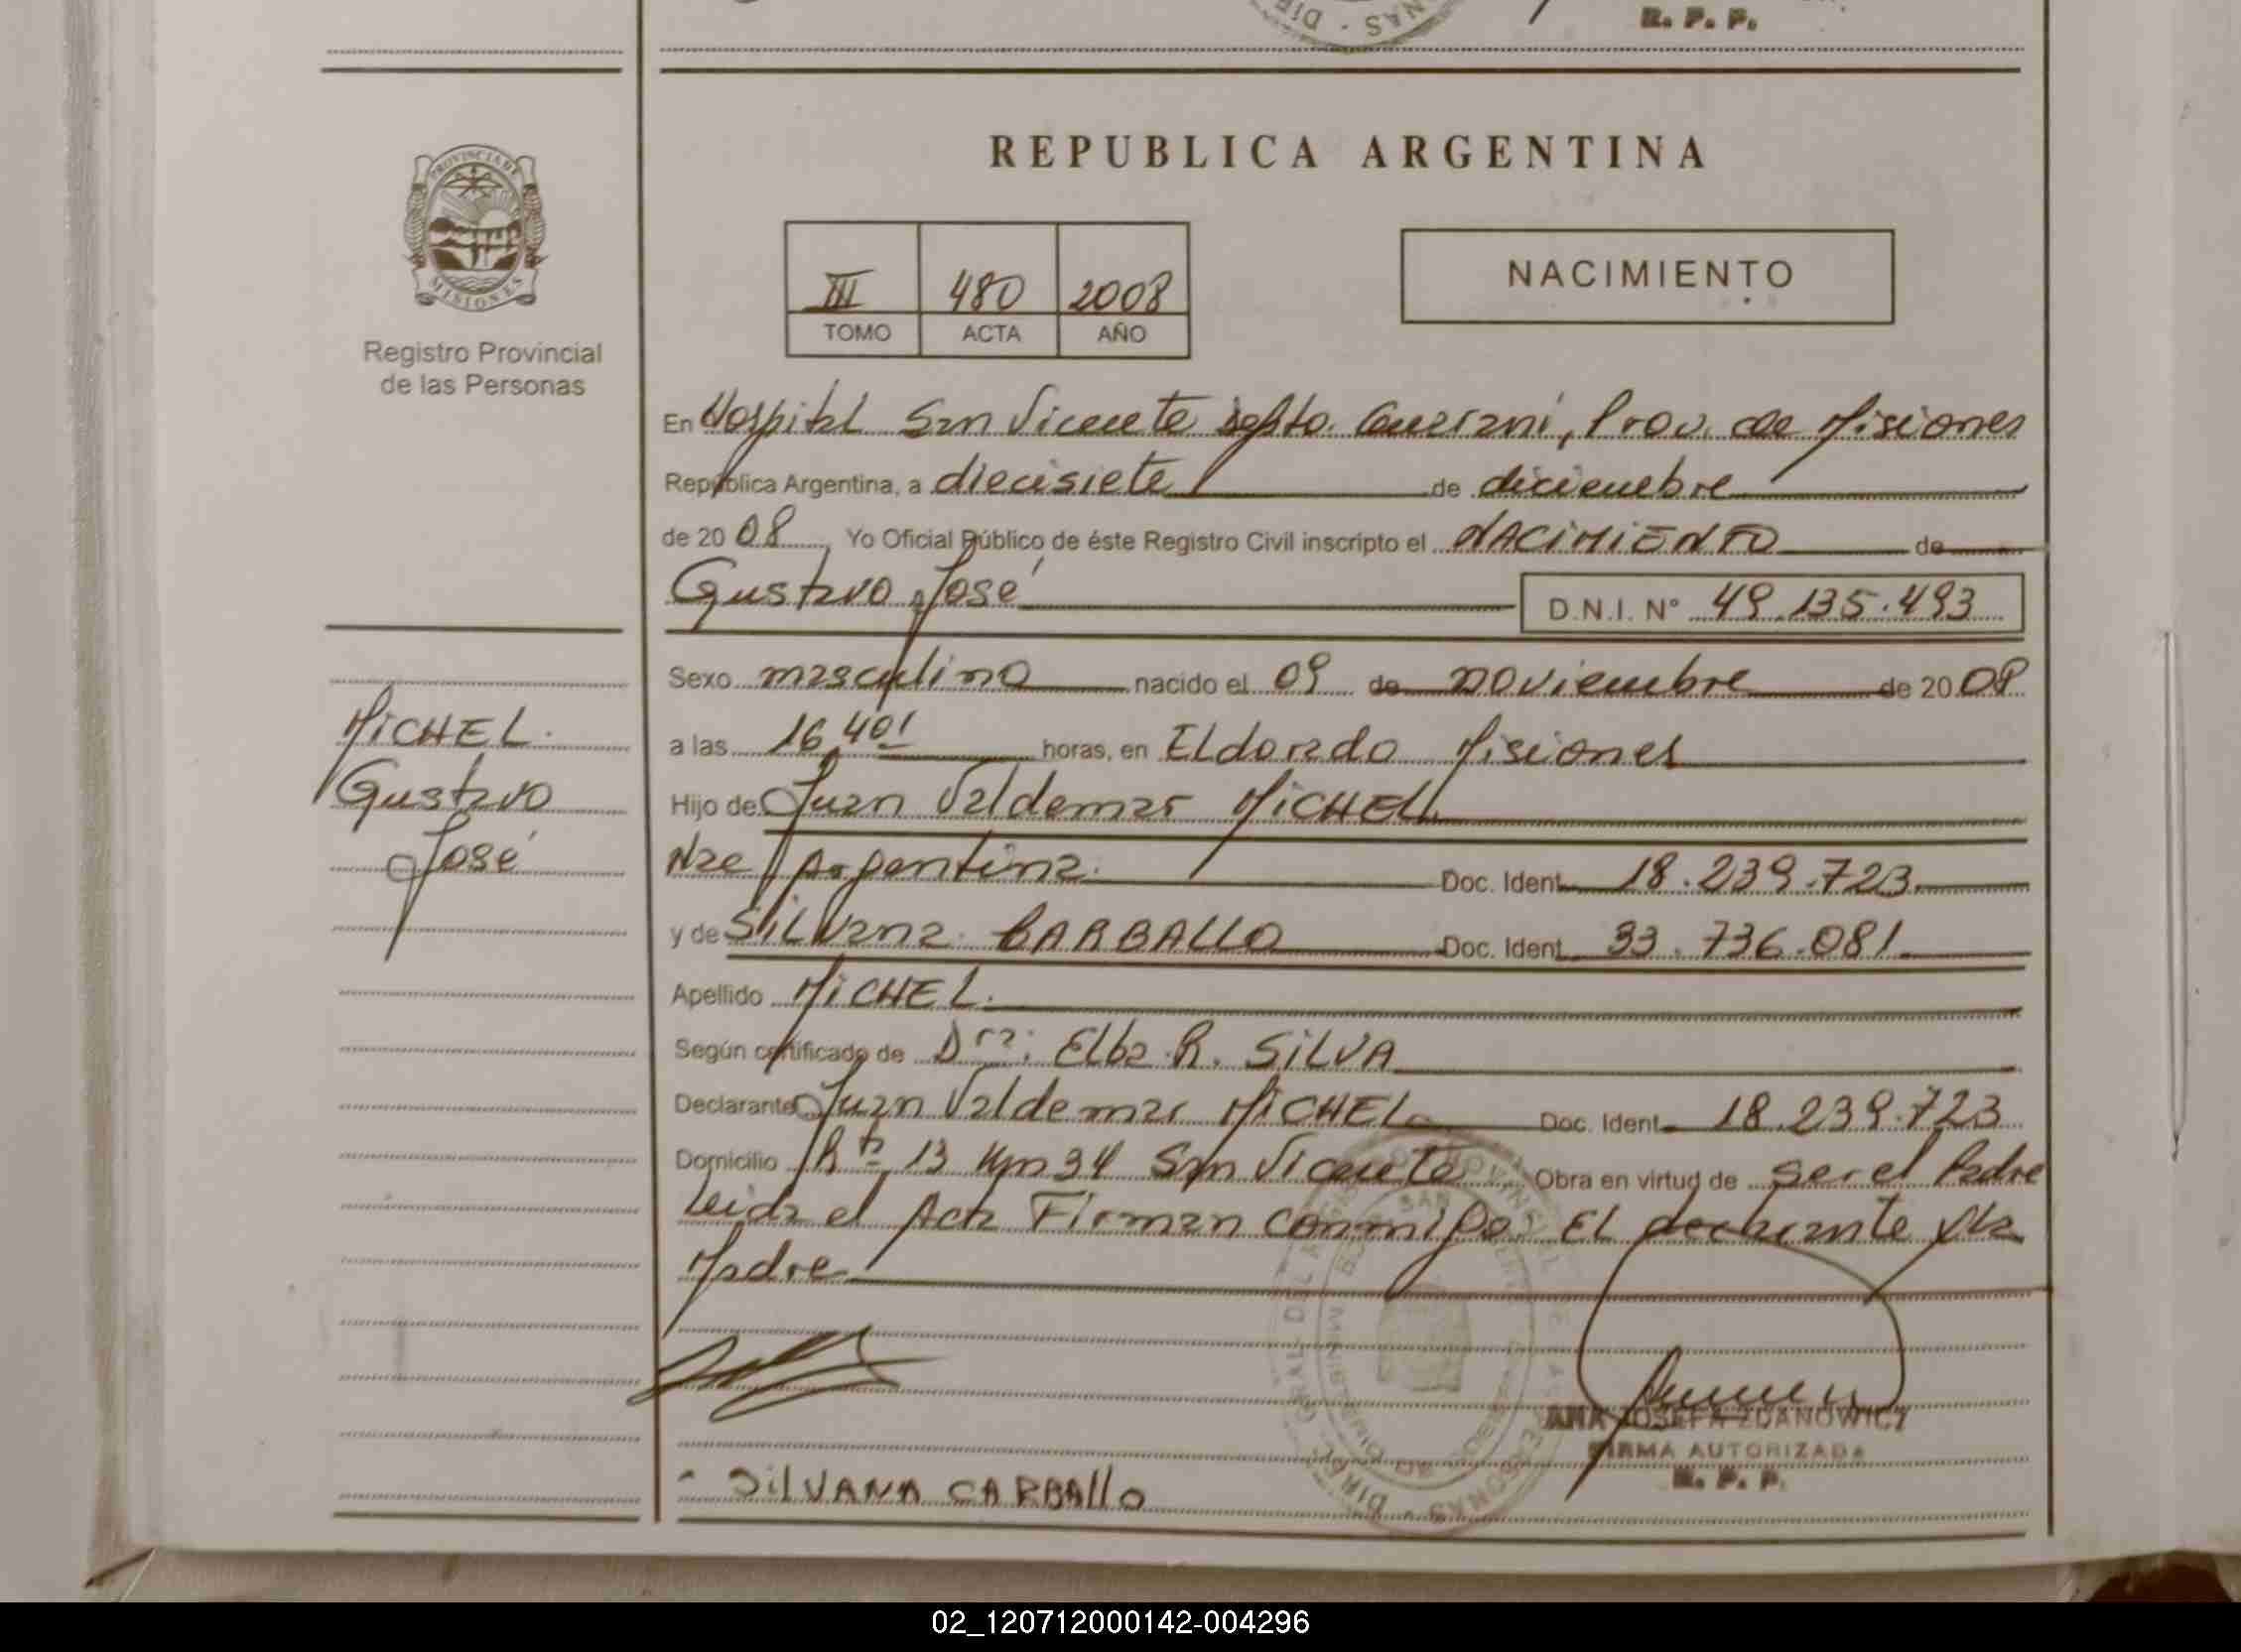 R. P. P.
REPUBLICA ARGENTINA
PROVINCIA DE
MISIONES
Registro Provincial
de las Personas
III 480 2008
TOMO ACTA AÑO
NACIMIENTO
En Hospital San Vicente Depto. Guaraní, Prov. de Misiones
República Argentina, a diecisiete de diciembre
de 2008 Yo Oficial Público de éste Registro Civil inscripto el NACIMIENTO de
Gustavo José D.N.I. Nº 49.135.493
Sexo masculino nacido el 09 de noviembre de 2008
a las 16,40' horas, en Eldorado Misiones
Hijo de Juan Valdemar MICHEL
Nac Argentina. Doc. Ident. 18.239.723.
y de SILVana CARBALLO Doc. Ident. 33.736.081.
Apellido MICHEL.
Según certificado de Dra: Elba R. SILVA
Declarante Juan Valdemar MICHEL Doc. Ident. 18.239.723
Domicilio Rta 13 Km 34 San Vicente Obra en virtud de ser el Padre
Leida el Acta Firman conmigo: El declarante y la
Madre
MICHEL.
Gustavo
José
ANA JOSEFA ZDANOWICZ
FIRMA AUTORIZADA
R. P. P.
SILVANA CARBAllO
02_120712000142-004296